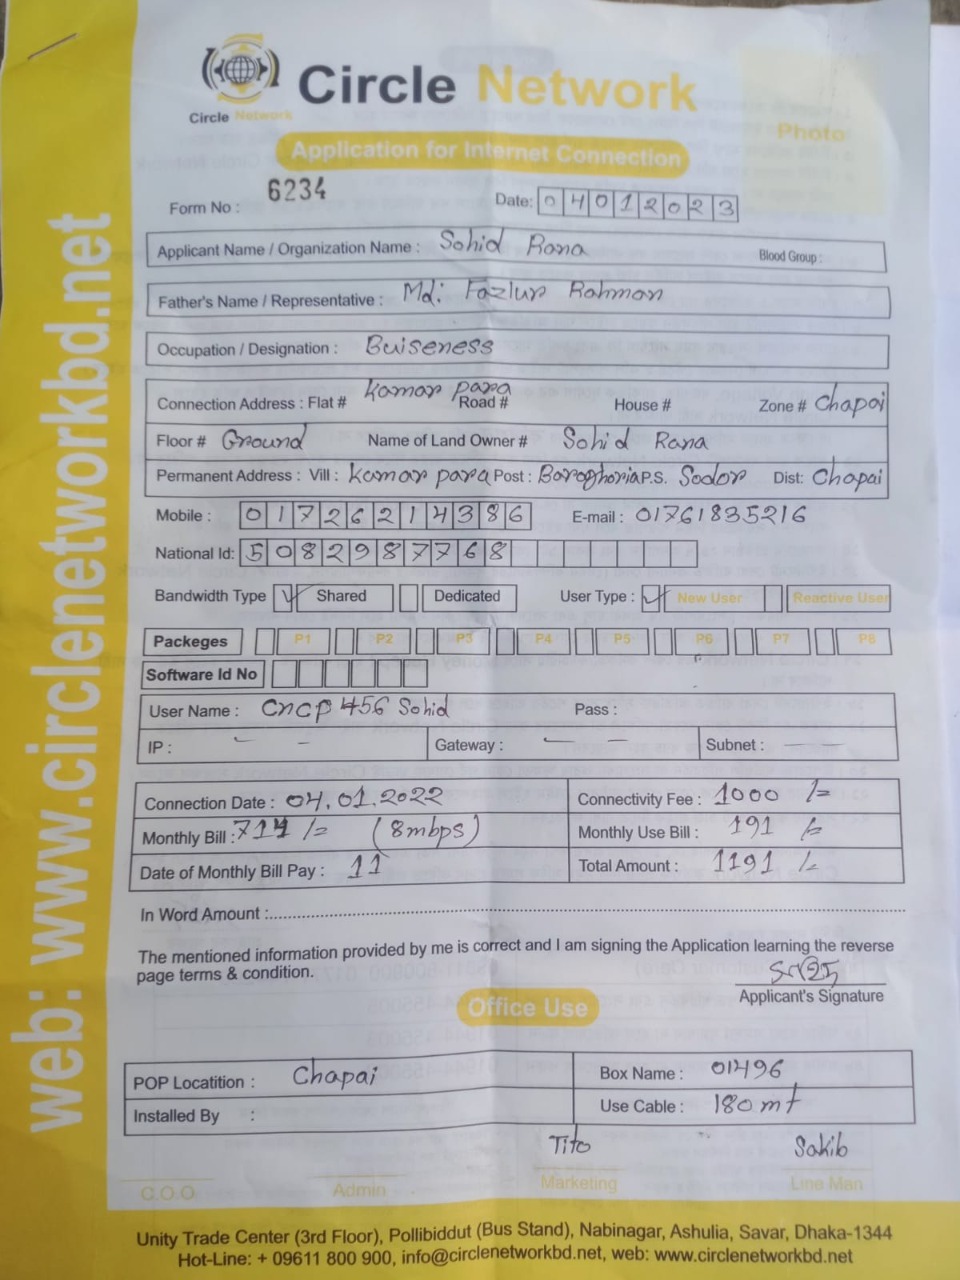 Circle Network
Circle Network
Photo
Application for Internet Connection
Form No : 6234
Date: 04012023
Applicant Name / Organization Name : Sohid Rana Blood Group :
Father's Name / Representative : Md: Fazlur Rahman
Occupation / Designation : Buiseness
Connection Address : Flat # Kamar para Road # House # Zone # Chapai
Floor # Ground Name of Land Owner # Sohid Rana
Permanent Address : Vill : Kamar para Post : Baroghoria P.S. Sador Dist: Chapai
Mobile : 01726214386 E-mail : 01761835216
National Id: 5082987768
Bandwidth Type Shared Dedicated User Type : New User Reactive User
Packeges P1 P2 P3 P4 P5 P6 P7 P8
Software Id No
User Name : CnCP 456 Sohid Pass :
IP : Gateway : Subnet :
Connection Date : 04.01.2022 Connectivity Fee : 1000 /=
Monthly Bill : 714 /= (8mbps) Monthly Use Bill : 191 /=
Date of Monthly Bill Pay : 11 Total Amount : 1191 /-
In Word Amount :
The mentioned information provided by me is correct and I am signing the Application learning the reverse
page terms & condition.
Applicant's Signature
Office Use
POP Locatition : Chapai Box Name : 01496
Installed By : Use Cable : 180 mt
Tito Sakib
C.O.O Admin Marketing Line Man
Unity Trade Center (3rd Floor), Pollibiddut (Bus Stand), Nabinagar, Ashulia, Savar, Dhaka-1344
Hot-Line: + 09611 800 900, info@circlenetworkbd.net, web: www.circlenetworkbd.net
web: www.circlenetworkbd.net